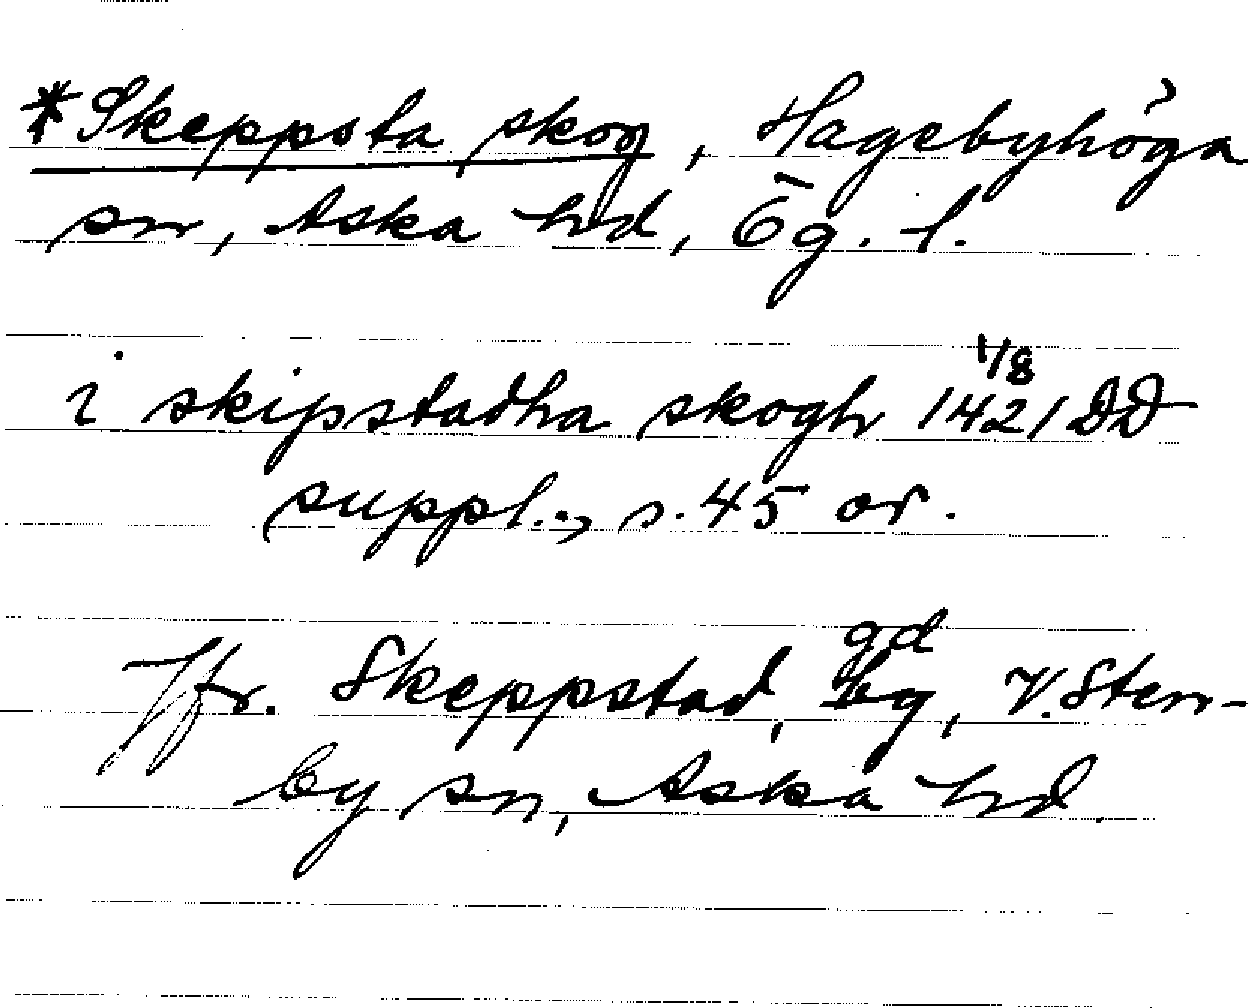 *Skeppsta skog, Hagebyhöga
sn, Aska hd, Ög. l.
i skipstadha skogh 1/8 1421 DD
suppl., s. 45 or.
Jfr. Skeppstad, gd, V. Sten-
by sn, Aska hd.